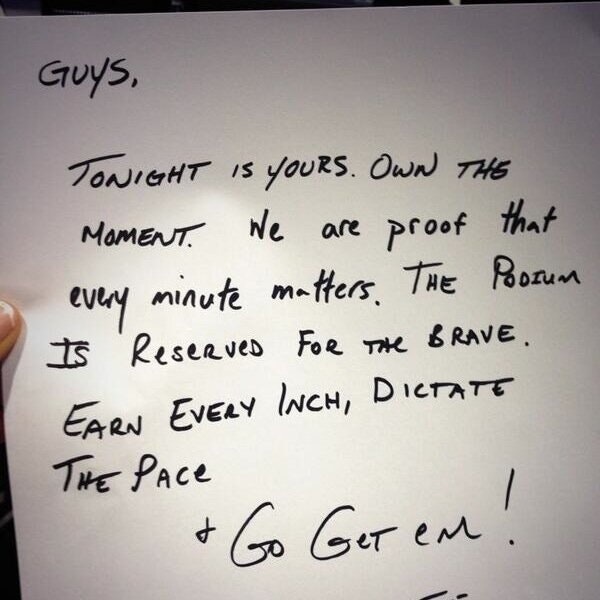 GUYS,
TONIGHT IS YOURS. OWN THE
MOMENT. We are proof that
every minute matters. THE PODIUM
IS RESERVED FOR THE BRAVE.
EARN EVERY INCH, DICTATE
THE PACE
+ GO GET EM!